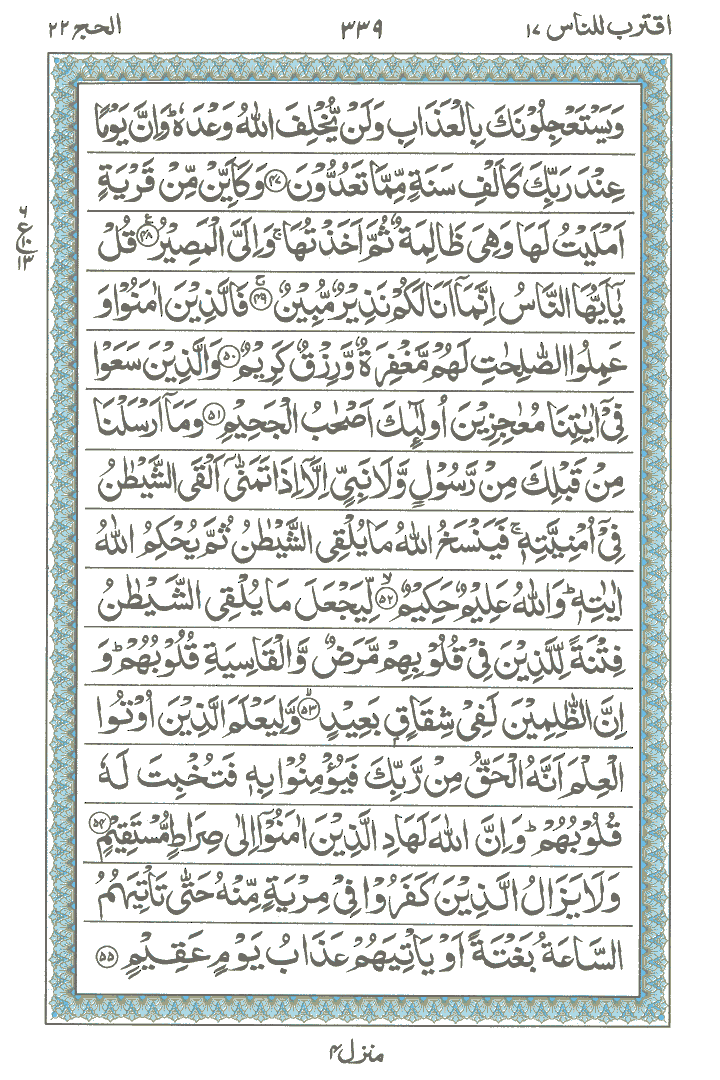 اقترب للناس ١٧ ٣٣٩ الحج ٢٢
وَيَسْتَعْجِلُوْنَكَ بِالْعَذَابِ وَلَنْ يُّخْلِفَ اللّٰهُ وَعْدَهٗ ؕ وَاِنَّ يَوْمًا
عِنْدَ رَبِّكَ كَاَلْفِ سَنَةٍ مِّمَّا تَعُدُّوْنَ ﴿۴۷﴾ وَكَاَيِّنْ مِّنْ قَرْيَةٍ
اَمْلَيْتُ لَهَا وَهِيَ ظَالِمَةٌ ثُمَّ اَخَذْتُهَا ۚ وَاِلَيَّ الْمَصِيْرُ ﴿۴۸﴾ قُلْ
يٰۤاَيُّهَا النَّاسُ اِنَّمَاۤ اَنَا لَكُمْ نَذِيْرٌ مُّبِيْنٌ ﴿۴۹﴾ فَالَّذِيْنَ اٰمَنُوْا وَ
عَمِلُوا الصّٰلِحٰتِ لَهُمْ مَّغْفِرَةٌ وَّرِزْقٌ كَرِيْمٌ ﴿۵۰﴾ وَالَّذِيْنَ سَعَوْا
فِيْۤ اٰيٰتِنَا مُعٰجِزِيْنَ اُولٰٓئِكَ اَصْحٰبُ الْجَحِيْمِ ﴿۵۱﴾ وَمَاۤ اَرْسَلْنَا
مِنْ قَبْلِكَ مِنْ رَّسُوْلٍ وَّلَا نَبِيٍّ اِلَّاۤ اِذَا تَمَنّٰۤى اَلْقَى الشَّيْطٰنُ
فِيْۤ اُمْنِيَّتِهٖ ۚ فَيَنْسَخُ اللّٰهُ مَا يُلْقِى الشَّيْطٰنُ ثُمَّ يُحْكِمُ اللّٰهُ
اٰيٰتِهٖ ؕ وَاللّٰهُ عَلِيْمٌ حَكِيْمٌ ﴿۵۲﴾ لِّيَجْعَلَ مَا يُلْقِى الشَّيْطٰنُ
فِتْنَةً لِّلَّذِيْنَ فِيْ قُلُوْبِهِمْ مَّرَضٌ وَّالْقَاسِيَةِ قُلُوْبُهُمْ ؕ وَ
اِنَّ الظّٰلِمِيْنَ لَفِيْ شِقَاقٍۭ بَعِيْدٍ ﴿۵۳﴾ وَّلِيَعْلَمَ الَّذِيْنَ اُوْتُوا
الْعِلْمَ اَنَّهُ الْحَقُّ مِنْ رَّبِّكَ فَيُؤْمِنُوْا بِهٖ فَتُخْبِتَ لَهٗ
قُلُوْبُهُمْ ؕ وَاِنَّ اللّٰهَ لَهَادِ الَّذِيْنَ اٰمَنُوْۤا اِلٰى صِرَاطٍ مُّسْتَقِيْمٍ ﴿۵۴﴾
وَلَا يَزَالُ الَّذِيْنَ كَفَرُوْا فِيْ مِرْيَةٍ مِّنْهُ حَتّٰى تَاْتِيَهُمُ
السَّاعَةُ بَغْتَةً اَوْ يَاْتِيَهُمْ عَذَابُ يَوْمٍ عَقِيْمٍ ﴿۵۵﴾
۶
ع
۱۰
۱۳
منزل ۴